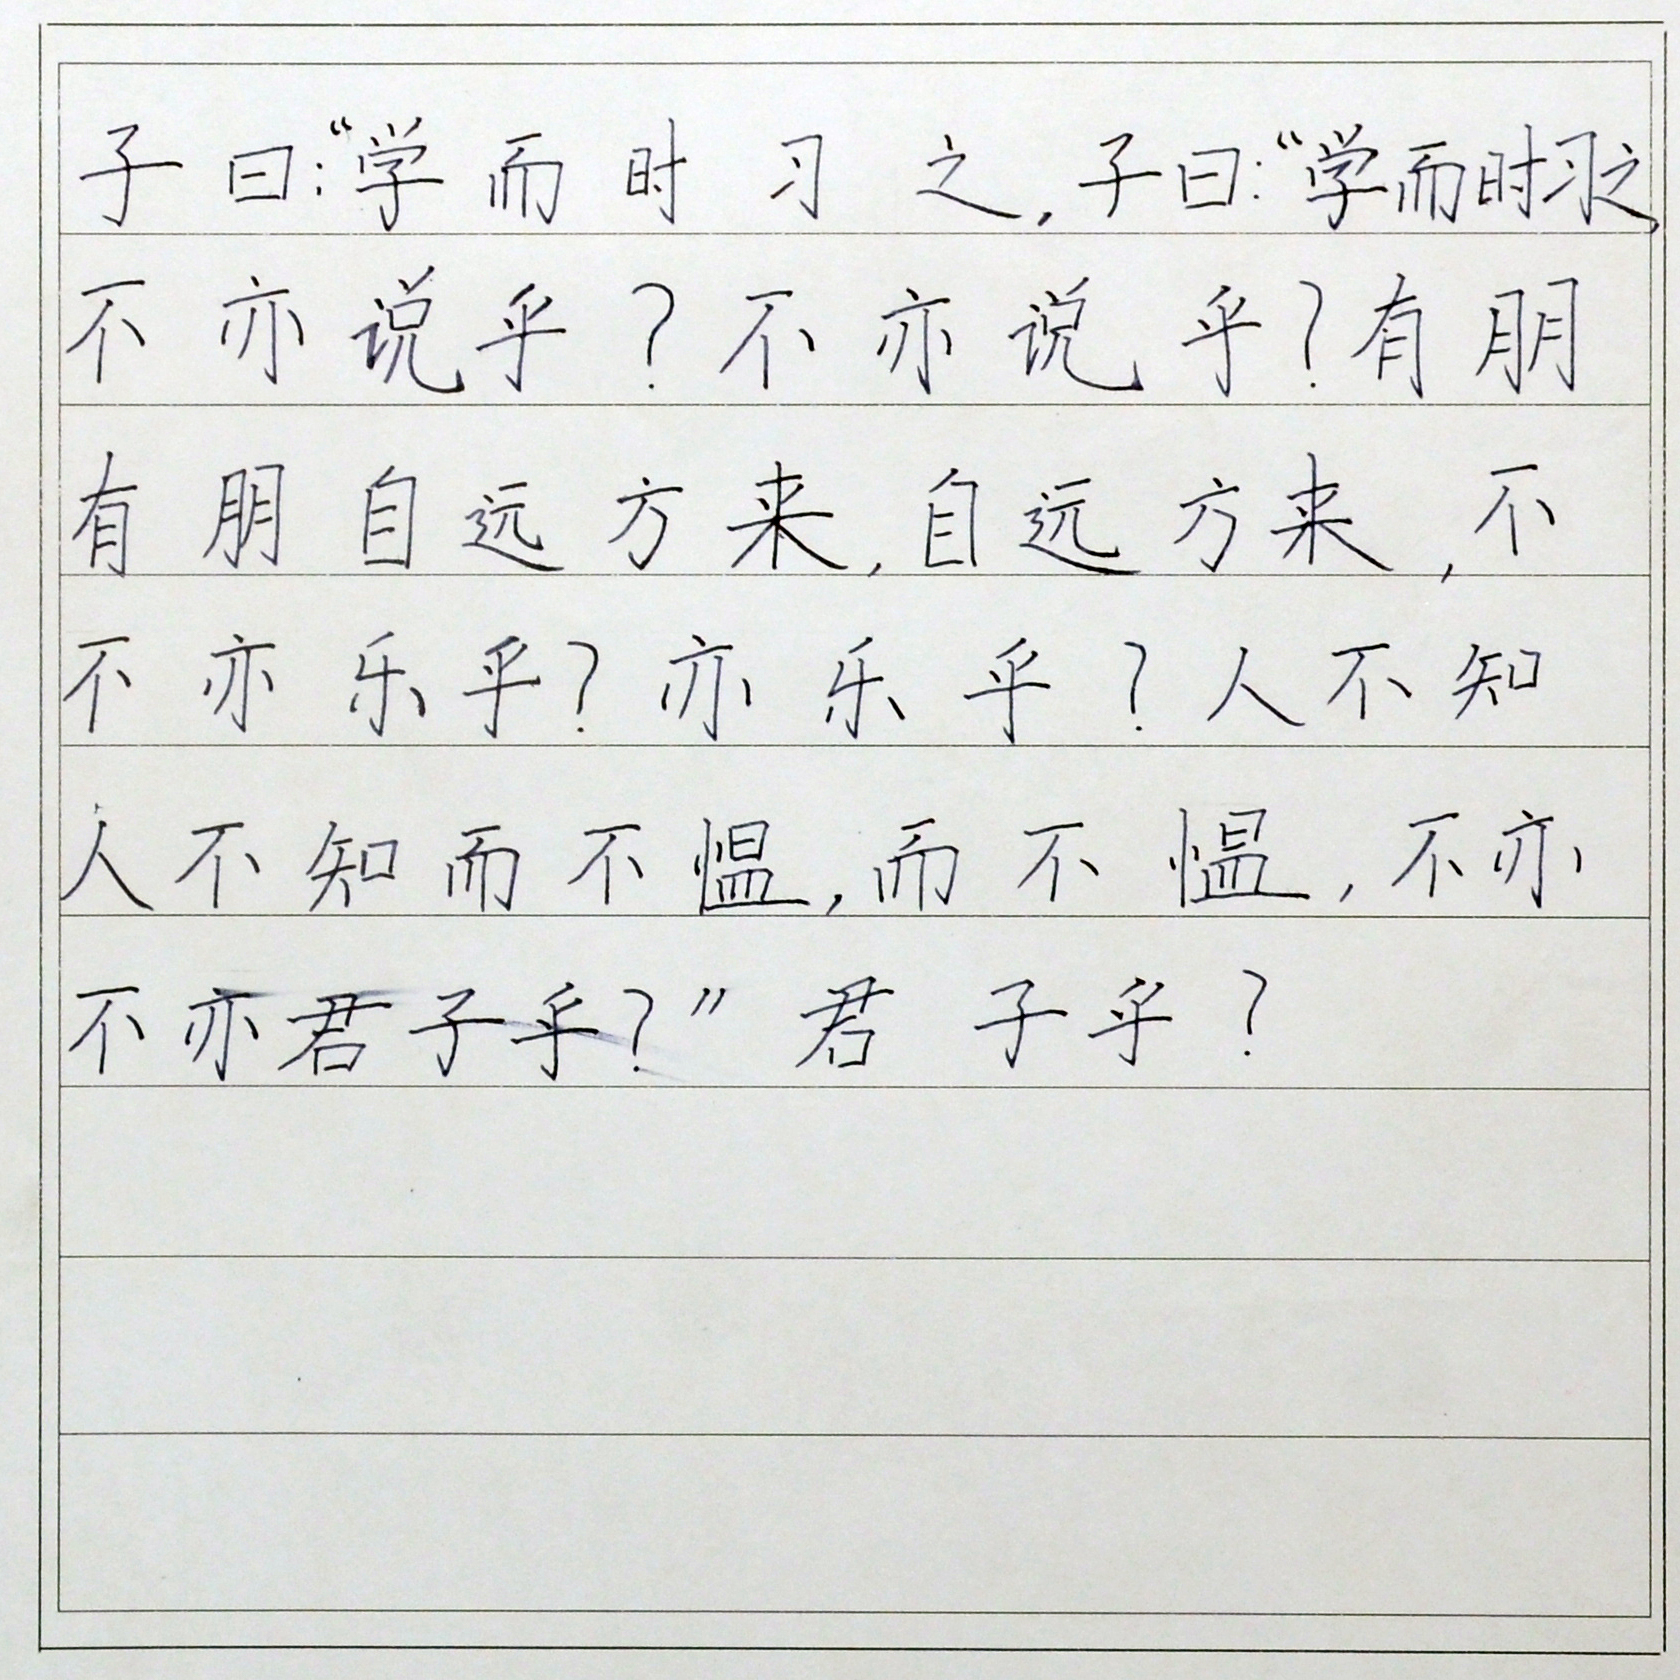 子曰:“学而时习之,子曰:“学而时习之,
不亦说乎?不亦说乎?有朋
有朋自远方来,自远方来,不
不亦乐乎?亦乐乎?人不知
人不知而不愠,而不愠,不亦
不亦君子乎?”君子乎?